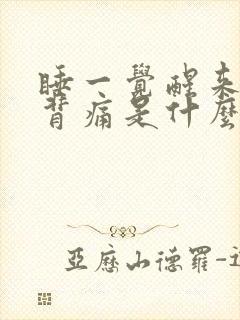 睡一覺醒來
背痛是什麼
亞歷山德羅-